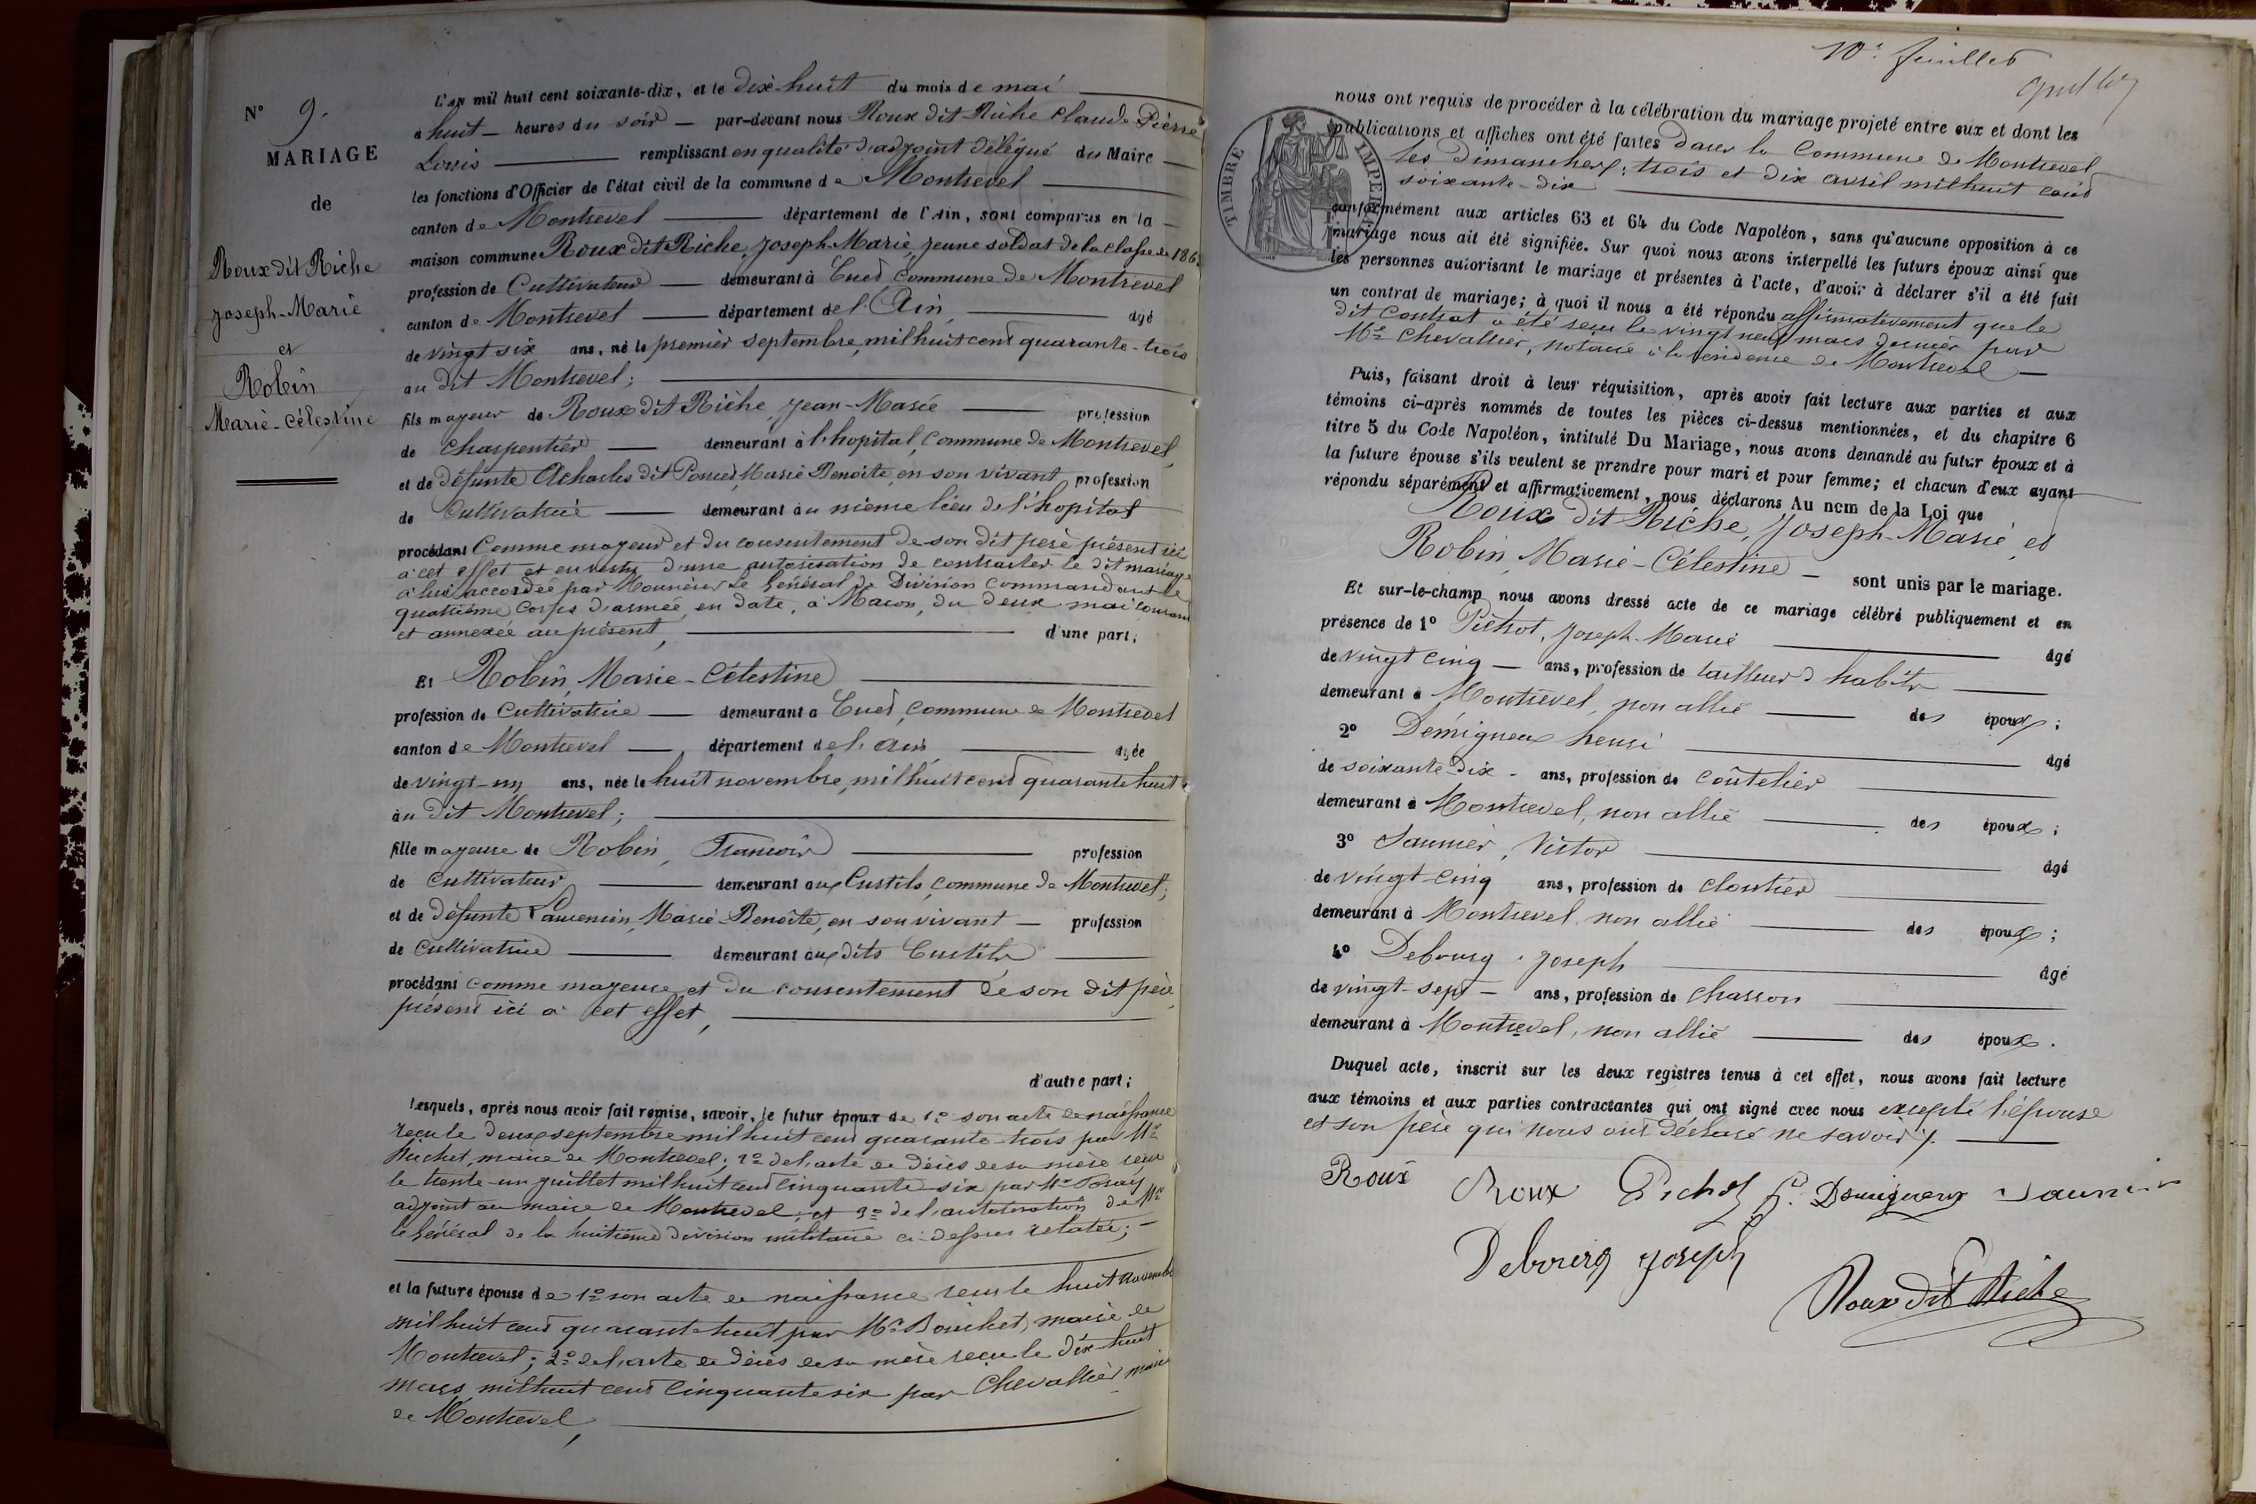 N° 9.
MARIAGE
de
Roux dit Riche
Joseph-Marie
et
Robin
Marie-Célestine
L'an mil huit cent soixante-dix, et le dix huit du mois de mai
à huit heures du soir par-devant nous Roux dit Riche Claude Pierre
Louis remplissant en qualité d'adjoint délégué du Maire
les fonctions d'Officier de l'état civil de la commune de Montrevel
canton de Montrevel département de l'Ain, sont comparus en la
maison commune Roux dit Riche, Joseph-Marie, jeune soldat de la classe de 186
profession de Cultivateur demeurant à Cuet, Commune de Montrevel
canton de Montrevel département de l'Ain, âgé
de vingt six ans, né le premier septembre, mil huit cent quarante-trois
au dit Montrevel;
fils majeur de Roux dit Riche, Jean-Marie profession
de Charpentier demeurant à l'hopital, Commune de Montrevel,
et de défunte dit Marie Benoîte, en son vivant profession
de Cultivatrice demeurant au même lieu de l'hopital
procédant Comme majeur et du consentement de son dit père présent ici
à cet effet et en vertu d'une autorisation de contracter le dit mariage
à lui accordée par Monsieur le Général de Division commandant le
quatrième Corps d'armée, en date, à Macon, du deux mai courant
et annexée au présent, d'une part;
Et Robin, Marie-Célestine
profession de Cultivatrice demeurant à Cuet, Commune de Montrevel
canton de Montrevel, département de l'Ain âgée
de vingt-un ans, née le huit novembre, mil huit cent quarante huit
au dit Montrevel;
fille majeure de Robin, François profession
de Cultivateur demeurant aux Custils, Commune de Montrevel;
et de défunte Marie-Benoîte, en son vivant profession
de Cultivatrice demeurant aux dits Custils
procédant comme majeure et du consentement de son dit père
présent ici à cet effet,
d'autre part;
Lesquels, après nous avoir fait remise, savoir, le futur époux de 1° son acte de naissance
reçu le deux septembre mil huit cent quarante-trois par Mr
maire de Montrevel; 2° de l'acte de décès de sa mère reçu
le trente-un juillet mil huit cent cinquante-six par Mr
adjoint au maire de Montrevel; et 3° de l'autorisation de Mr
le Général de la huitième division militaire ci-dessus relatée;
et la future épouse de 1° son acte de naissance reçu le huit novembre
mil huit cent quarante huit par Mr Bouchet, maire de
Montrevel; 2° de l'acte de décès de sa mère reçu le dix huit
mars mil huit cent cinquante six par Chevallier maire
de Montrevel,
10e feuillet
nous ont requis de procéder à la célébration du mariage projeté entre eux et dont les
publications et affiches ont été faites dans la Commune de Montrevel
les dimanches, trois et dix avril mil huit cent
soixante-dix
TIMBRE IMPERIAL
conformément aux articles 63 et 64 du Code Napoléon, sans qu'aucune opposition à ce
mariage nous ait été signifiée. Sur quoi nous avons interpellé les futurs époux ainsi que
les personnes autorisant le mariage et présentes à l'acte, d'avoir à déclarer s'il a été fait
un contrat de mariage; à quoi il nous a été répondu affirmativement que le
dit contrat a été reçu le vingt neuf mars dernier par
Me Chevallier, notaire à la résidence de Montrevel
Puis, faisant droit à leur réquisition, après avoir fait lecture aux parties et aux
témoins ci-après nommés de toutes les pièces ci-dessus mentionnées, et du chapitre 6
titre 5 du Code Napoléon, intitulé Du Mariage, nous avons demandé au futur époux et à
la future épouse s'ils veulent se prendre pour mari et pour femme; et chacun d'eux ayant
répondu séparément et affirmativement, nous déclarons Au nom de la Loi que
Roux dit Riche, Joseph-Marie, et
Robin, Marie-Célestine sont unis par le mariage.
Et sur-le-champ nous avons dressé acte de ce mariage célébré publiquement et en
présence de 1° Pichot, Joseph-Marie âgé
de vingt cinq ans, profession de tailleur d'habits
demeurant à Montrevel, non allié des époux;
2° Démigneux henri âgé
de soixante-dix ans, profession de coûtelier
demeurant à Montrevel, non allié des époux;
3° Saunier, Victor âgé
de vingt-cinq ans, profession de cloutier
demeurant à Montrevel non allié des époux;
4° Debourg Joseph âgé
de vingt-sept ans, profession de charron
demeurant à Montrevel, non allié des époux.
Duquel acte, inscrit sur les deux registres tenus à cet effet, nous avons fait lecture
aux témoins et aux parties contractantes qui ont signé avec nous excepté l'épouse
et son père qui nous ont déclaré ne savoir
Roux Roux Pichot h. Demigneux Saunier
Debourg Joseph
Roux dit Riche